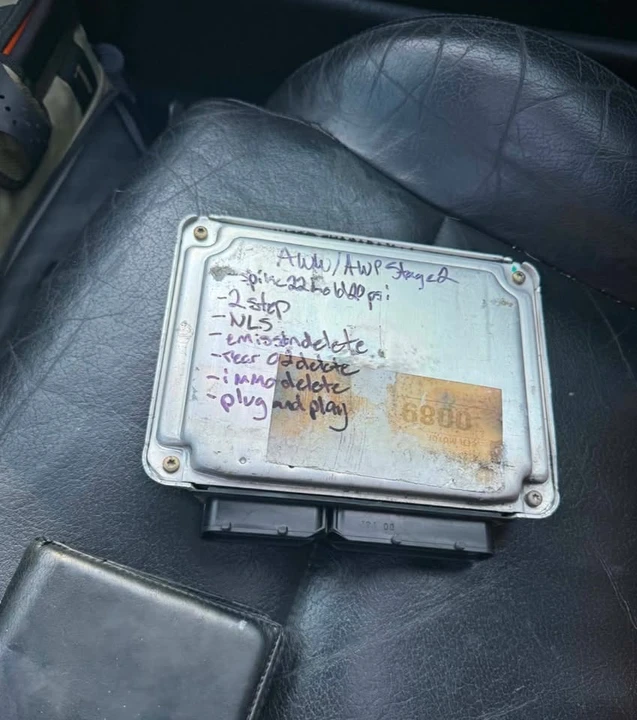 AWW/AWP Stage 2
- pike 22 hold 20 psi
- 2 step
- NLS
- emission delete
- rear O2 delete
- immo delete
- plug and play
6800